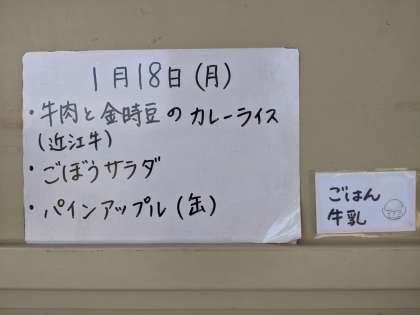 1月18日(月)
・牛肉と金時豆のカレーライス
(近江牛)
・ごぼうサラダ
・パインアップル(缶)
ごはん
牛乳